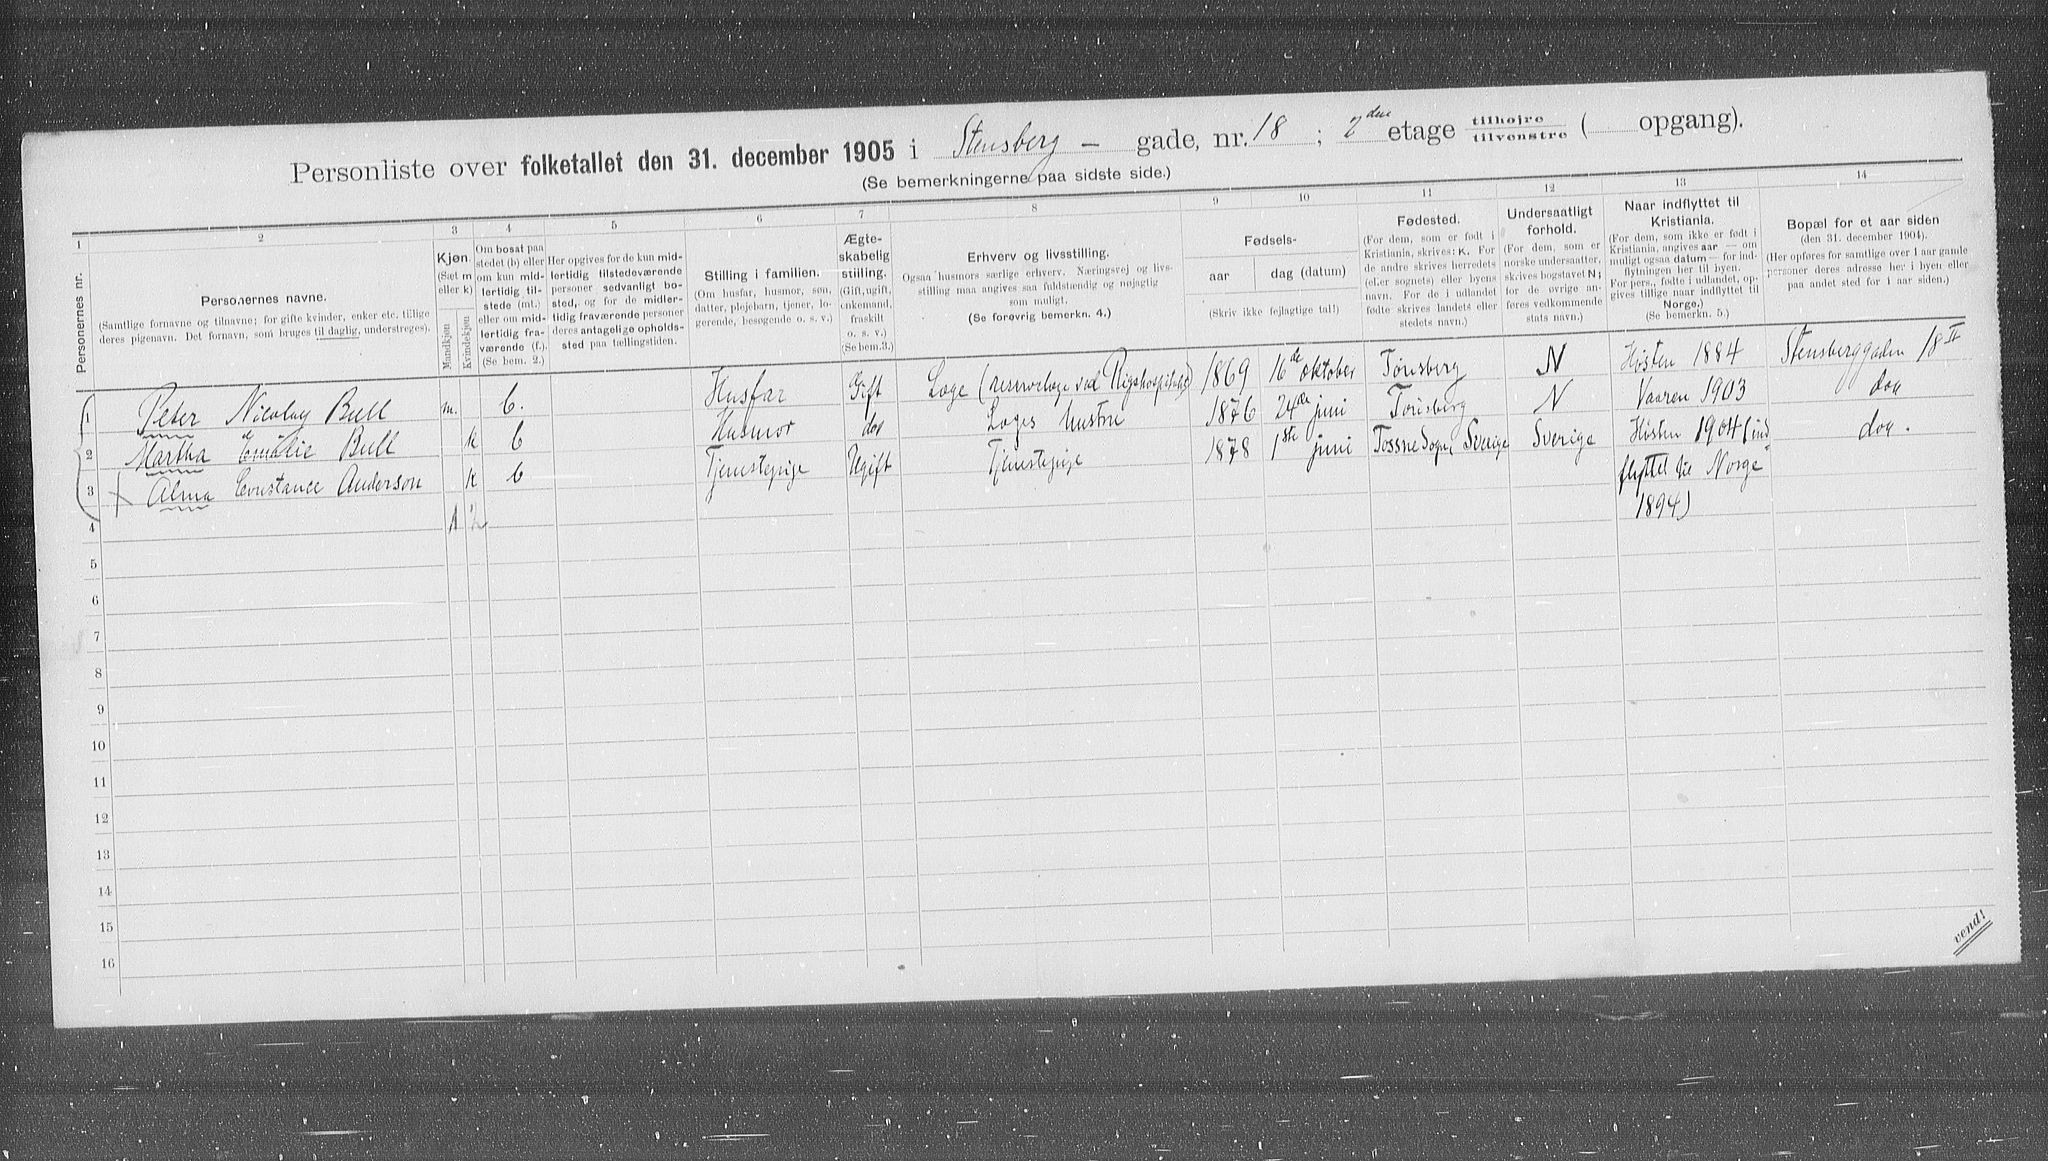 Personliste over folketallet den 31. december 1905 i Stensberg – gade, nr. 18 ; 2den etage tilhøjre tilvenstre ( opgang).
(Se bemerkningerne paa sidste side.)
1 2 3 4 5 6 7 8 9 10 11 12 13 14
Personernes nr.
Personernes navne.
(Samtlige fornavne og tilnavne; for gifte kvinder, enker etc. tillige
deres pigenavn. Det fornavn, som bruges til daglig, understreges).
Kjøn.
(Sæt m
eller k)
Mandkjøn
Kvindekjøn
Om bosat paa
stedet (b) eller
om kun mid-
lertidig til-
stede (mt.)
eller om mid-
lertidig fra-
værende (f.).
(Se bem. 2.)
Her opgives for de kun mid-
lertidig tilstedeværende
personer sedvanligt bo-
sted, og for de midler-
tidig fraværende personer
deres antagelige opholds-
sted paa tællingstiden.
Stilling i familien.
(Om husfar, husmor, søn,
datter, plejebarn, tjener, lo-
gerende, besøgende o. s. v.)
Ægte-
skabelig
stilling.
(Gift, ugift,
enkemand,
fraskilt
o. s. v.)
(Se bem.3.)
Erhverv og livsstilling.
Ogsaa husmors særlige erhverv. Næringsvej og livs-
stilling maa angives saa fuldstændig og nøjagtig
som muligt.
(Se forøvrig bemerkn. 4.)
Fødsels-
aar
dag (datum)
(Skriv ikke fejlagtige tal!)
Fødested.
(For dem, som er født i
Kristiania, skrives: K. For
de andre skrives herredets
(el.er sognets) eller byens
navn. For de i udlandet
fødte skrives landets eller
stedets navn.)
Undersaatligt
forhold.
(For dem, som er
norske undersaatter,
skrives bogstavet N;
for de øvrige an-
føres vedkommende
stats navn.)
Naar indflyttet til
Kristiania.
(For dem, som ikke er født i
Kristiania, angives aar — om
muligt ogsaa datum — for ind-
flytningen her til byen.
For pers., fødte i udlandet, op-
gives tillige naar indflyttet til
Norge.)
(Se bemerkn. 5.)
Bopæl for et aar siden
(den 31. december 1904).
(Her opføres for samtlige over 1 aar gamle
personer deres adresse her i byen eller
paa andet sted for 1 aar siden.)
1 Peter Nicolay Bull m. b. Husfar Gift Læge (reservelæge ved Rigshospitalet) 1869 16de oktober Tønsberg N Høsten 1884 Stensberggaden 18 II
2 Martha Emilie Bull k b Husmor do Læges hustru 1876 24de juni Tønsberg N Vaaren 1903 do
3 Alma Constance Anderson k b Tjenestepige Ugift Tjenestepige 1878 1ste juni Tossne Sogn, Sverige Sverige Høsten 1904 (ind
flyttet til Norge
1894) do.
4 1 2
5
6
7
8
9
10
11
12
13
14
15
16
vend!